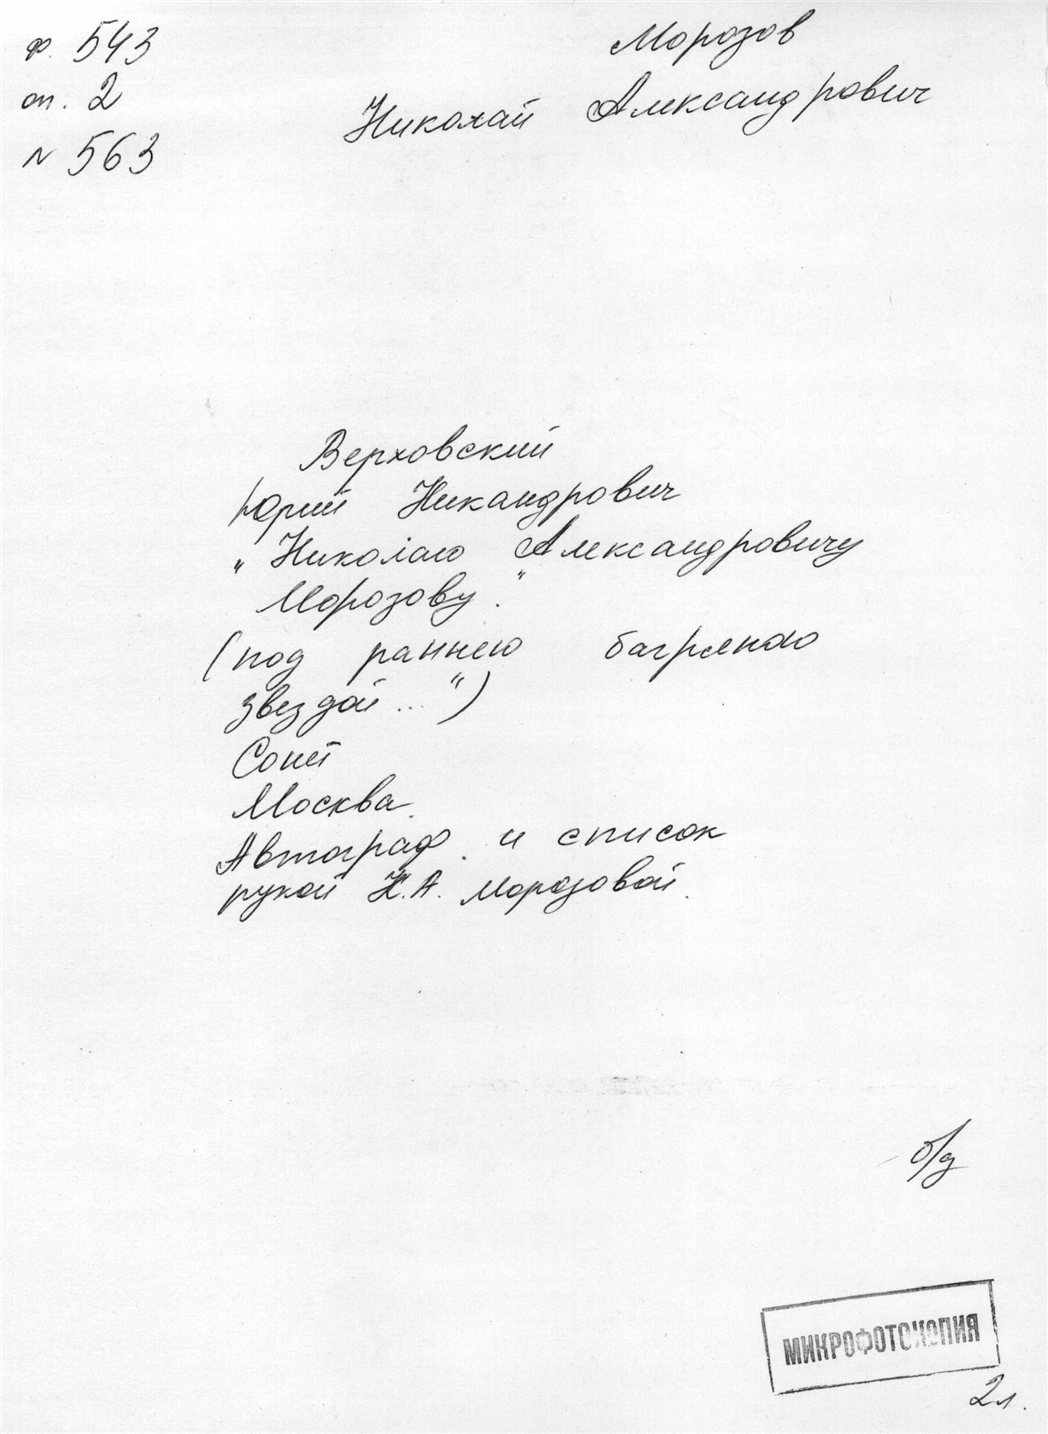 ф. 543
оп. 2
N 563
Морозов
Николай Александрович
Верховский
Юрий Никандрович
„Николаю Александровичу
Морозову."
(под раннею багряною
звездой...")
Сонет
Москва.
Автограф и список
рукой К.А. Морозовой.
б/д
МИКРОФОТОКОПИЯ
2л.